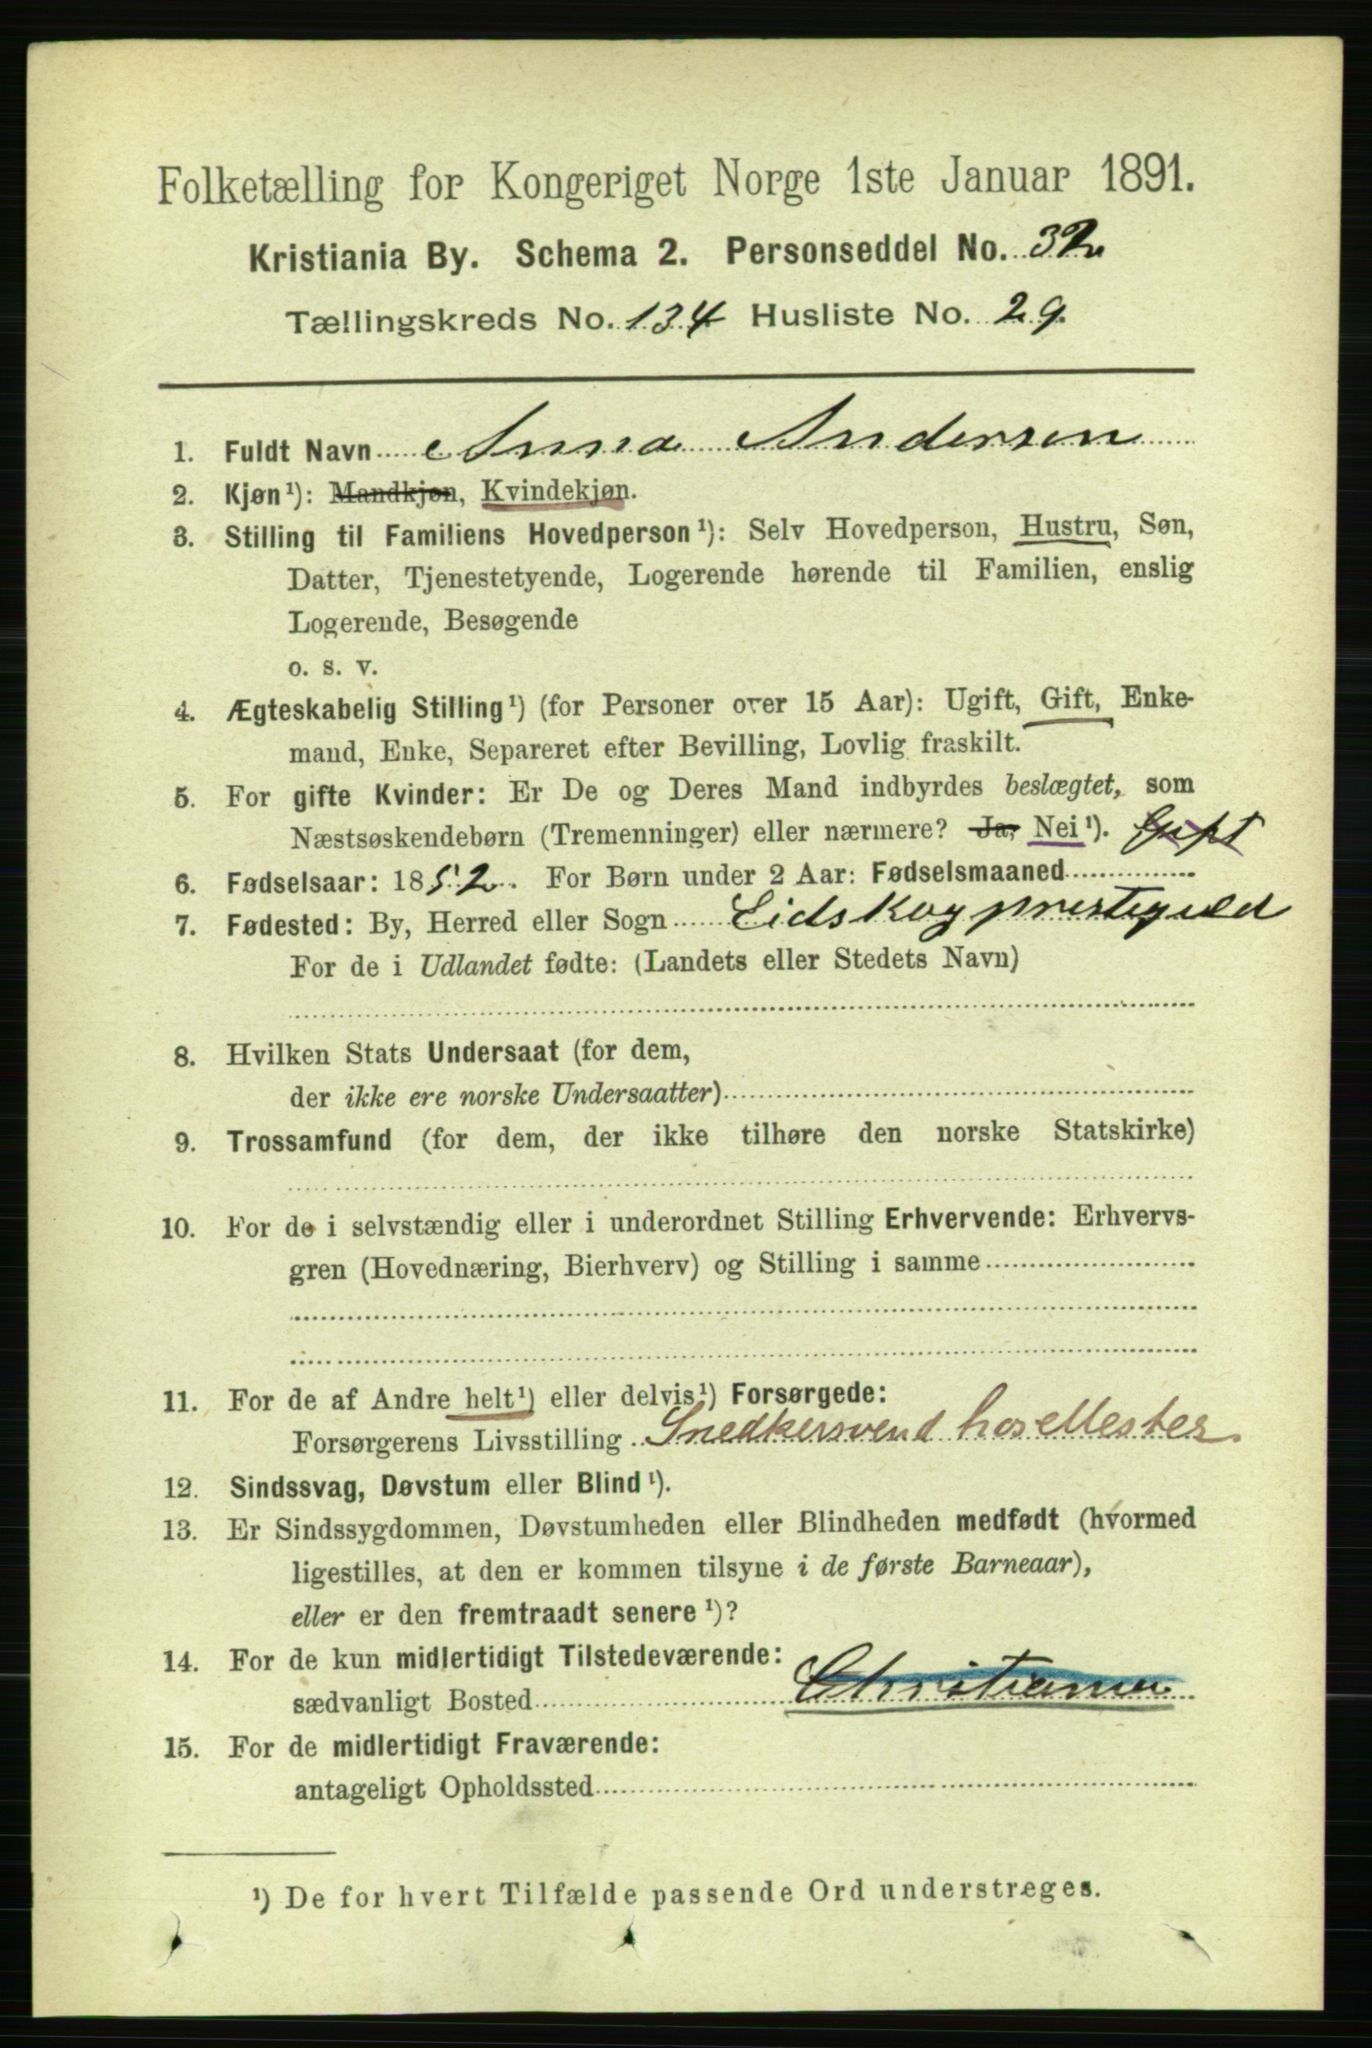 Folketælling for Kongeriget Norge 1ste Januar 1891.
Kristiania By. Schema 2. Personseddel No. 32
Tællingskreds No. 134 Husliste No. 29.
1. Fuldt Navn Anna Andersen
2. Kjøn¹): Mandkjøn, Kvindekjøn.
3. Stilling til Familiens Hovedperson¹): Selv Hovedperson, Hustru, Søn,
Datter, Tjenestetyende, Logerende hørende til Familien, enslig
Logerende, Besøgende
o. s. v.
4. Ægteskabelig Stilling¹) (for Personer over 15 Aar): Ugift, Gift, Enke-
mand, Enke, Separeret efter Bevilling, Lovlig fraskilt.
5. For gifte Kvinder: Er De og Deres Mand indbyrdes beslægtet, som
Næstsøskendebørn (Tremenninger) eller nærmere? Ja, Nei¹). Gift
6. Fødselsaar: 1852. For Børn under 2 Aar: Fødselsmaaned
7. Fødested: By, Herred eller Sogn Eidskog prestegield
For de i Udlandet fødte: (Landets eller Stedets Navn)
8. Hvilken Stats Undersaat (for dem,
der ikke ere norske Undersaatter)
9. Trossamfund (for dem, der ikke tilhøre den norske Statskirke)
10. For de i selvstændig eller i underordnet Stilling Erhvervende: Erhvervs-
gren (Hovednæring, Bierhverv) og Stilling i samme
11. For de af Andre helt¹) eller delvis¹) Forsørgede:
Forsørgerens Livsstilling Snedkersvend hos Mester
12. Sindssvag, Døvstum eller Blind¹).
13. Er Sindssygdommen, Døvstumheden eller Blindheden medfødt (hvormed
ligestilles, at den er kommen tilsyne i de første Barneaar),
eller er den fremtraadt senere¹)?
14. For de kun midlertidigt Tilstedeværende:
sædvanligt Bosted Christiania
15. For de midlertidigt Fraværende:
antageligt Opholdssted
¹) De for hvert Tilfælde passende Ord understreges.